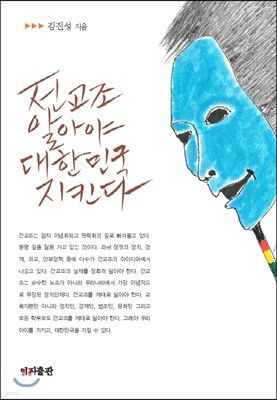 ▶▶▶ 김진성 지음
전교조
알아야
대한민국
지킨다
전교조는 점차 이념화되고 권력화의 길로 빠져들고 있다.
분명 길을 잘못 가고 있는 것이다. 좌파 정권의 정치, 경
제, 외교, 안보정책 중에 다수가 전교조의 아이디어에서
나오고 있다. 전교조의 실체를 정확히 알아야 한다. 전교
조는 순수한 노조가 아니라 우리나라에서 가장 이념적으
로 무장된 정치단체다. 전교조를 제대로 알아야 한다. 교
육자뿐만 아니라 정치인, 경제인, 법조인, 문화인 그리고
모든 학부모도 전교조를 제대로 알아야 한다. 그래야 우리
아이를 지키고, 대한민국을 지킬 수 있다.
출판
yes24